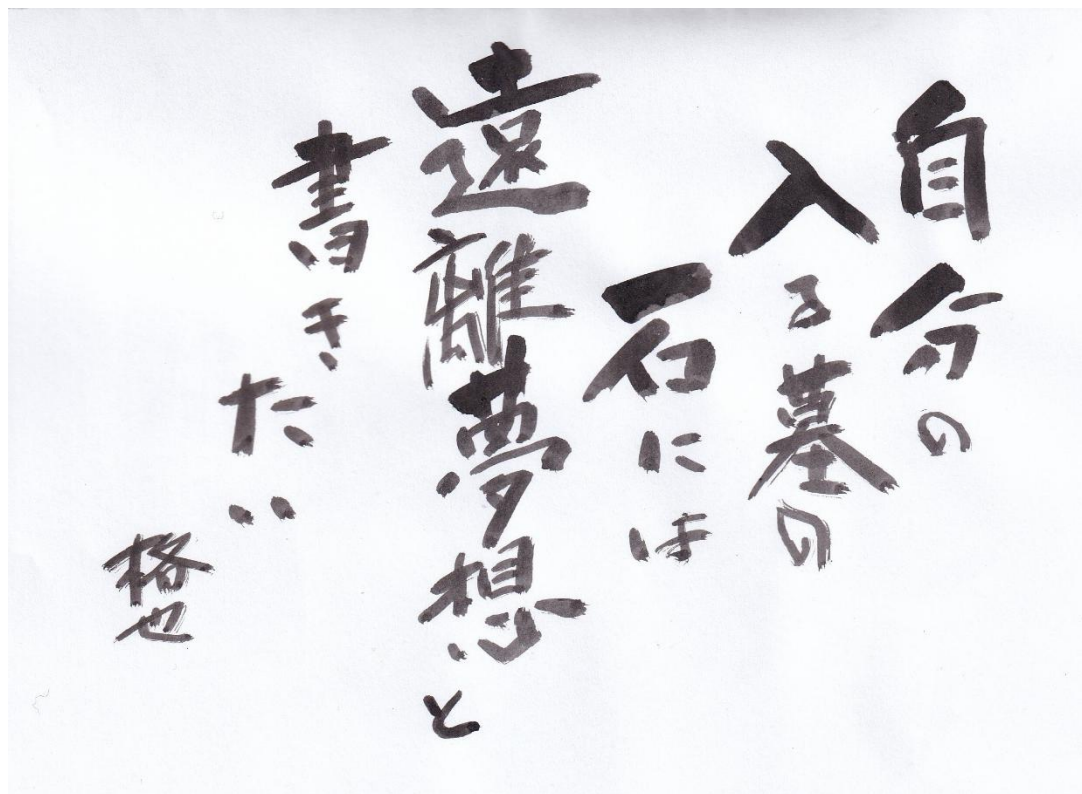 自分の
入る墓の
石には
遠離夢想と
書きたい
格也